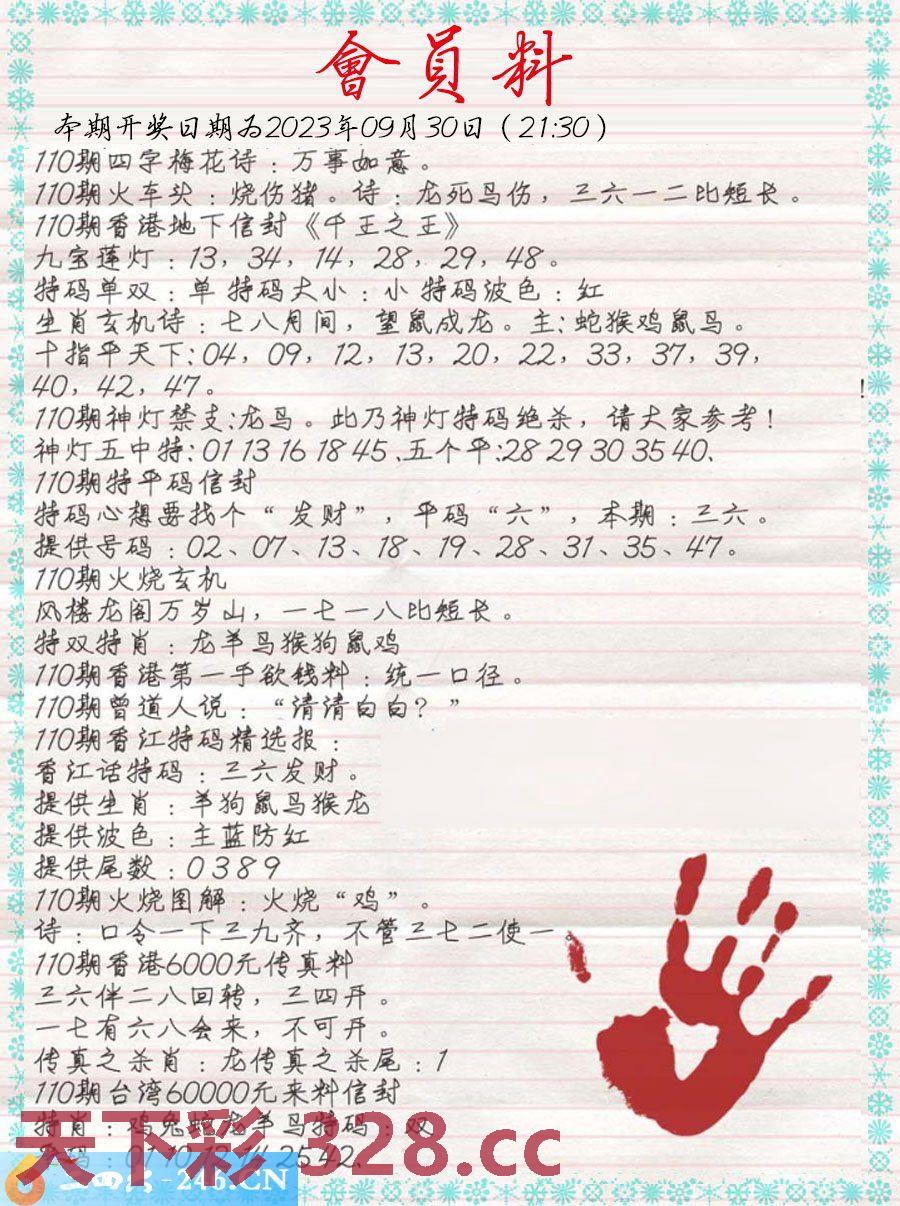 會員料
本期开奖日期为2023年09月30日（21:30）
110期四字梅花诗：万事如意。
110期火车头：烧伤猪。诗：龙死鸟伤，三六一二比短长。
110期香港地下信封《千王之王》
九宝莲灯：13，34，14，28，29，48。
特码单双：单 特码大小：小 特码波色：红
生肖玄机诗：七八月间，望鼠成龙。主：蛇猴鸡鼠鸟。
十指平天下：04，09，12，13，20，22，33，37，39，
40，42，47。
!
110期神灯禁支：龙鸟。此乃神灯特码绝杀，请大家参考！
神灯五中特：01 13 16 18 45、五个平：28 29 30 35 40、
110期特平码信封
特码心想要找个“发财”，平码“六”，本期：三六。
提供号码：02、07、13、18、19、28、31、35、47。
110期火烧玄机
风楼龙阁万岁山，一七一八比短长。
特双特肖：龙羊鸟猴狗鼠鸡
110期香港第一手欲钱料：统一口径。
110期曾道人说：“清清白白？”
110期香江特码精选报：
香江话特码：三六发财。
提供生肖：羊狗鼠鸟猴龙
提供波色：主蓝防红
提供尾数：0 3 8 9
110期火烧图解：火烧“鸡”。
诗：口令一下三九齐，不管三七二使一。
110期香港6000元传真料
三六伴二八回转，三四开。
一七有六八会来，不可开。
传真之杀肖：龙传真之杀尾：1
110期台湾60000元来料信封
特肖：鸡兔蛇龙羊鸟特码：双
平码：01 10 12 14 25 42、
天下彩.328.cc
二四六-246.CN